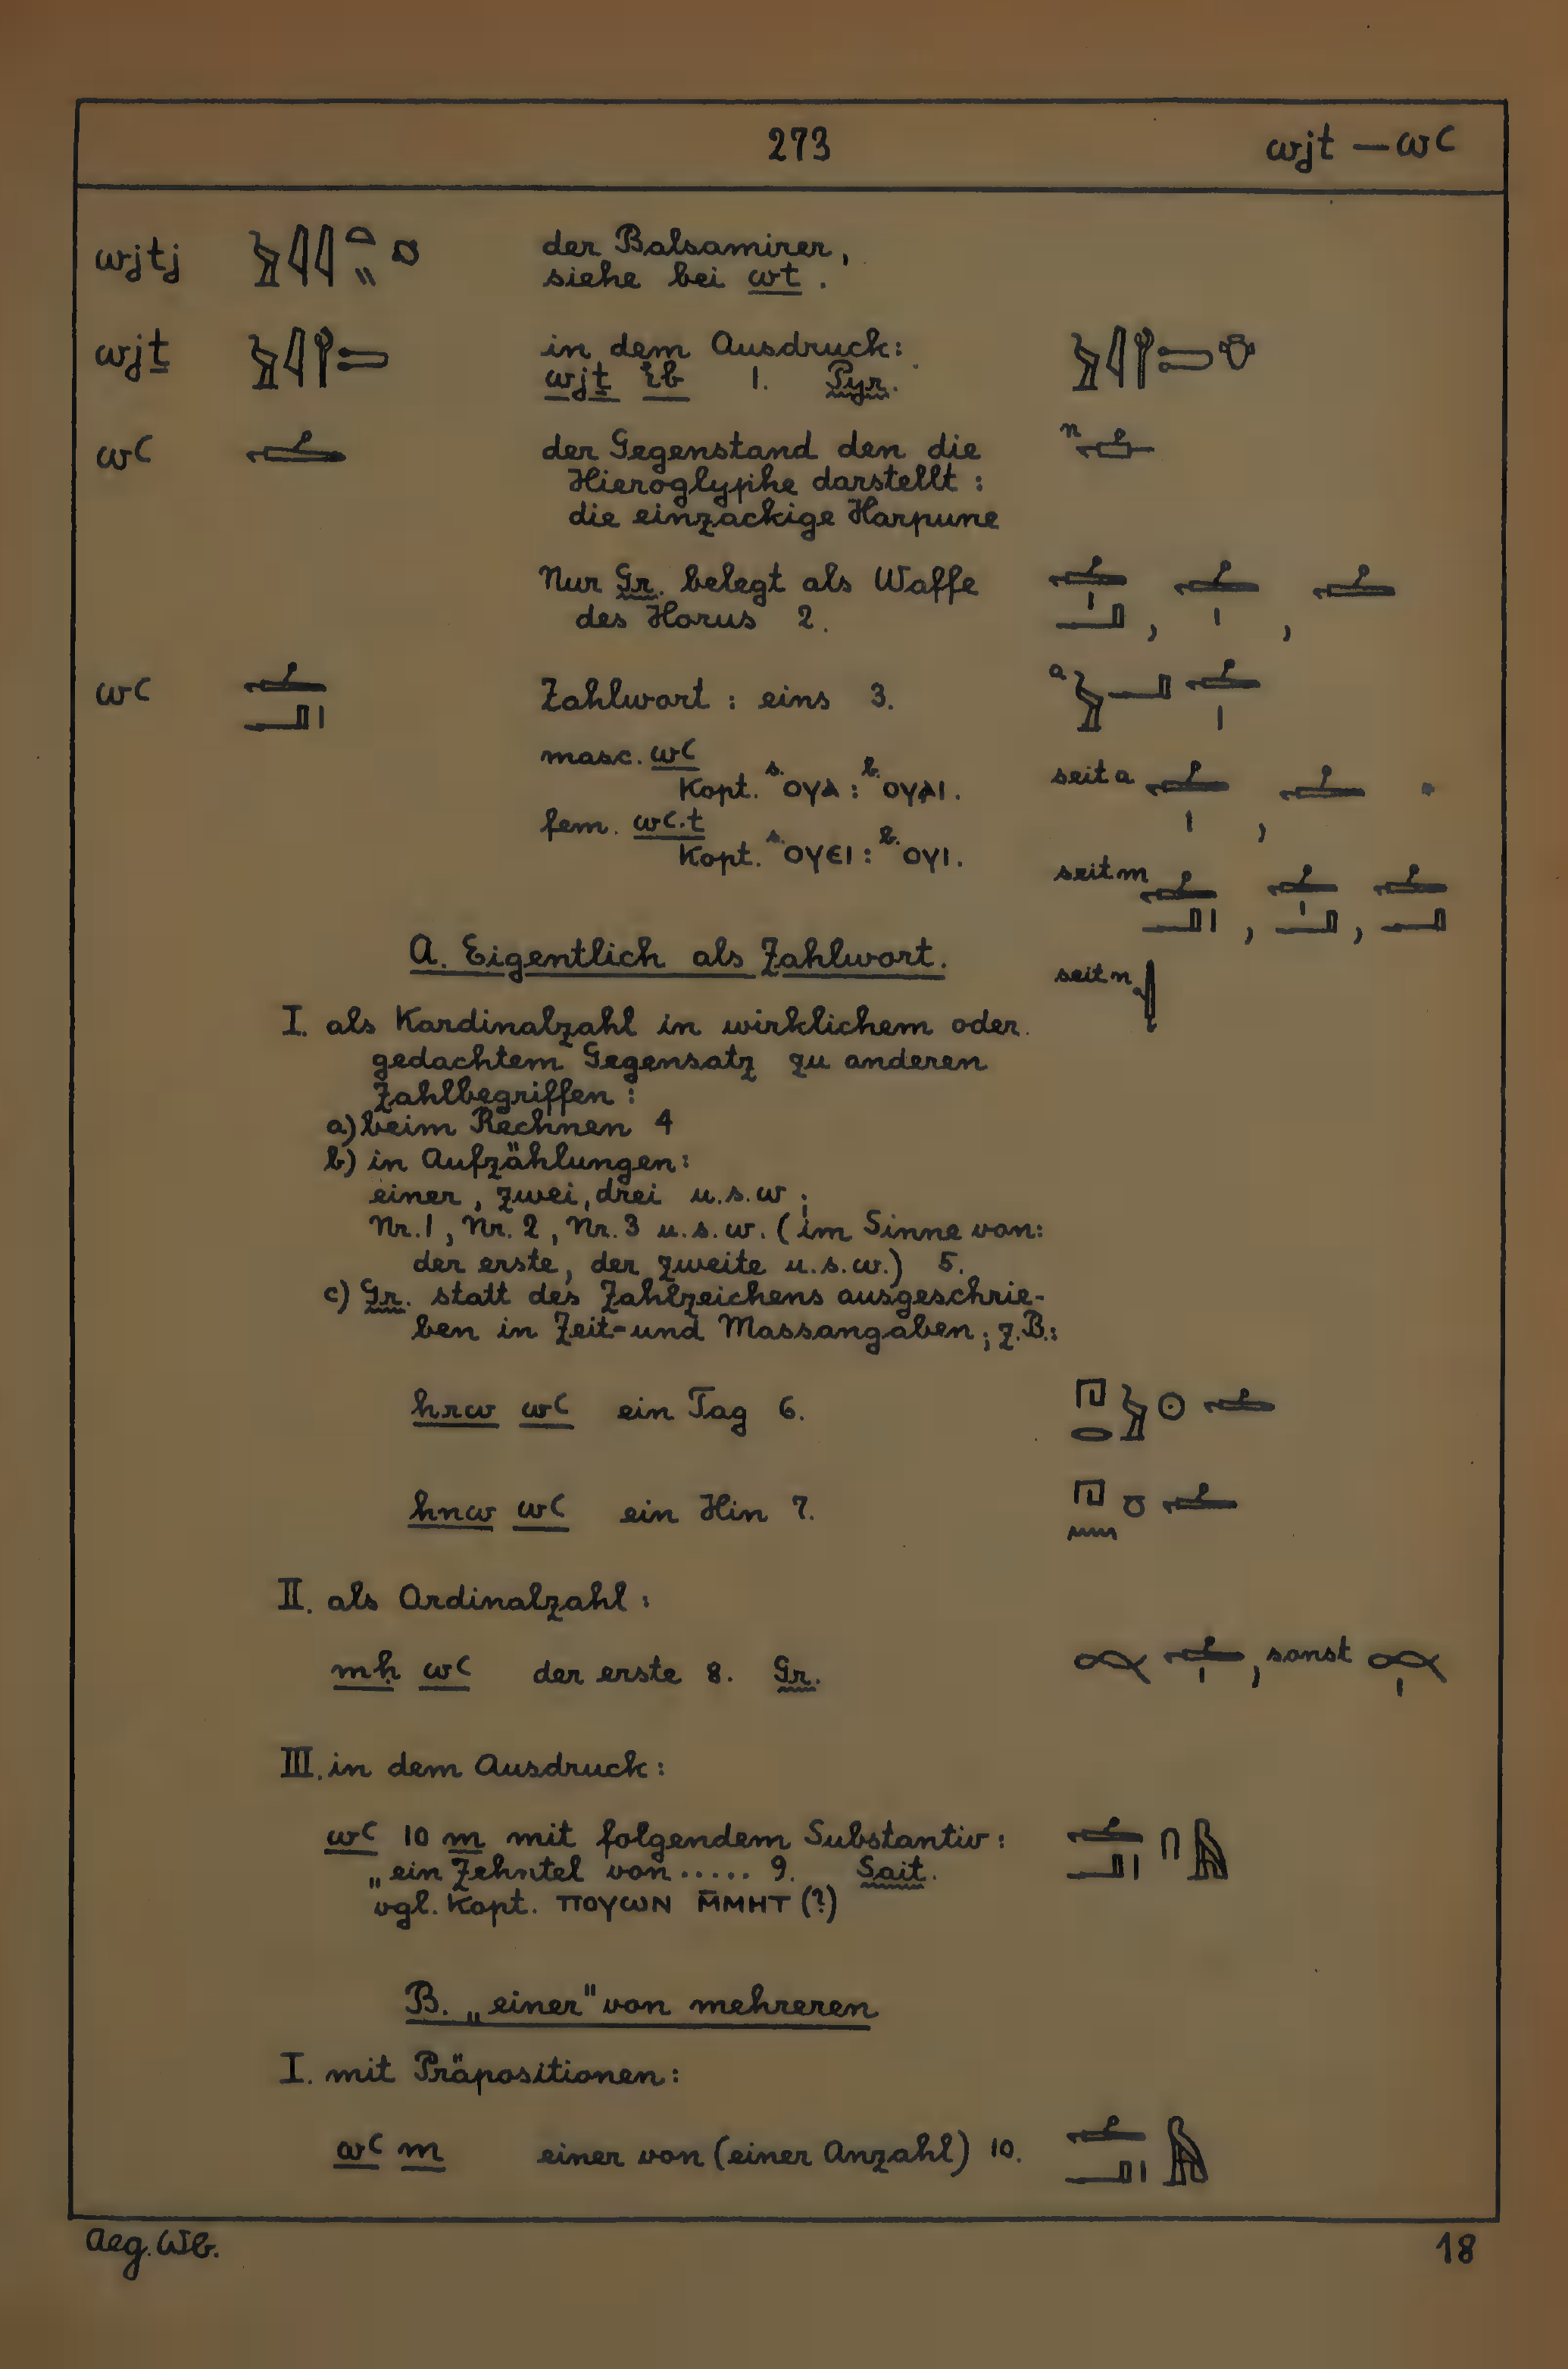 273
wjṯ — wꜥ
wjtj 𓅱𓇋𓇋𓏏𓏭 der Balsamirer,
siehe bei wt.
wjṯ in dem Ausdruck:
wjṯ ı͗b 1. Pyr.
wꜥ der Gegenstand den die
n
Hieroglyphe darstellt:
die einzackige Harpune
Nur Gr. belegt als Waffe
des Horus 2.
wꜥ Zahlwort: eins 3.
a
masc. wꜥ
Kopt. s. ⲟⲩⲁ: b. ⲟⲩⲁⲓ.
seit a
fem. wꜥ.t
Kopt. s. ⲟⲩⲉⲓ: b. ⲟⲩⲓ.
seit m
A. Eigentlich als Zahlwort.
seit n
I. als Kardinalzahl in wirklichem oder
gedachtem Gegensatz zu anderen
Zahlbegriffen:
a) beim Rechnen 4
b) in Aufzählungen:
einer, zwei, drei u.s.w;
Nr.1, Nr.2, Nr.3 u.s.w. (im Sinne von:
der erste, der zweite u.s.w.) 5.
c) Gr. statt des Zahlzeichens ausgeschrie-
ben in Zeit- und Massangaben; z.B.:
hrw wꜥ ein Tag 6. 𓉔𓂋𓅱𓇳𓌡
hnw wꜥ ein Hin 7. 𓉔𓈖𓏌𓌡
II. als Ordinalzahl:
mḥ wꜥ der erste 8. Gr. 𓎔𓌡𓏤, sonst 𓎔𓏤
III. in dem Ausdruck:
wꜥ 10 m mit folgendem Substantiv: 𓌡𓂝𓏤𓎆𓅓
„ein Zehntel von ..... 9. Sait.
vgl. Kopt. ⲡⲟⲩⲱⲛ ⲙ̄ⲙⲏⲧ (?)
B. „einer" von mehreren
I. mit Präpositionen:
wꜥ m einer von (einer Anzahl) 10. 𓌡𓂝𓏤𓅓
Aeg. Wb.
18